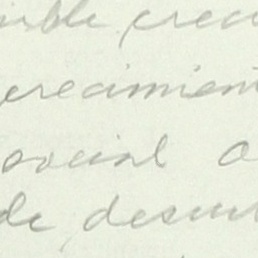 ible crec
crecimient
social a
de desarr